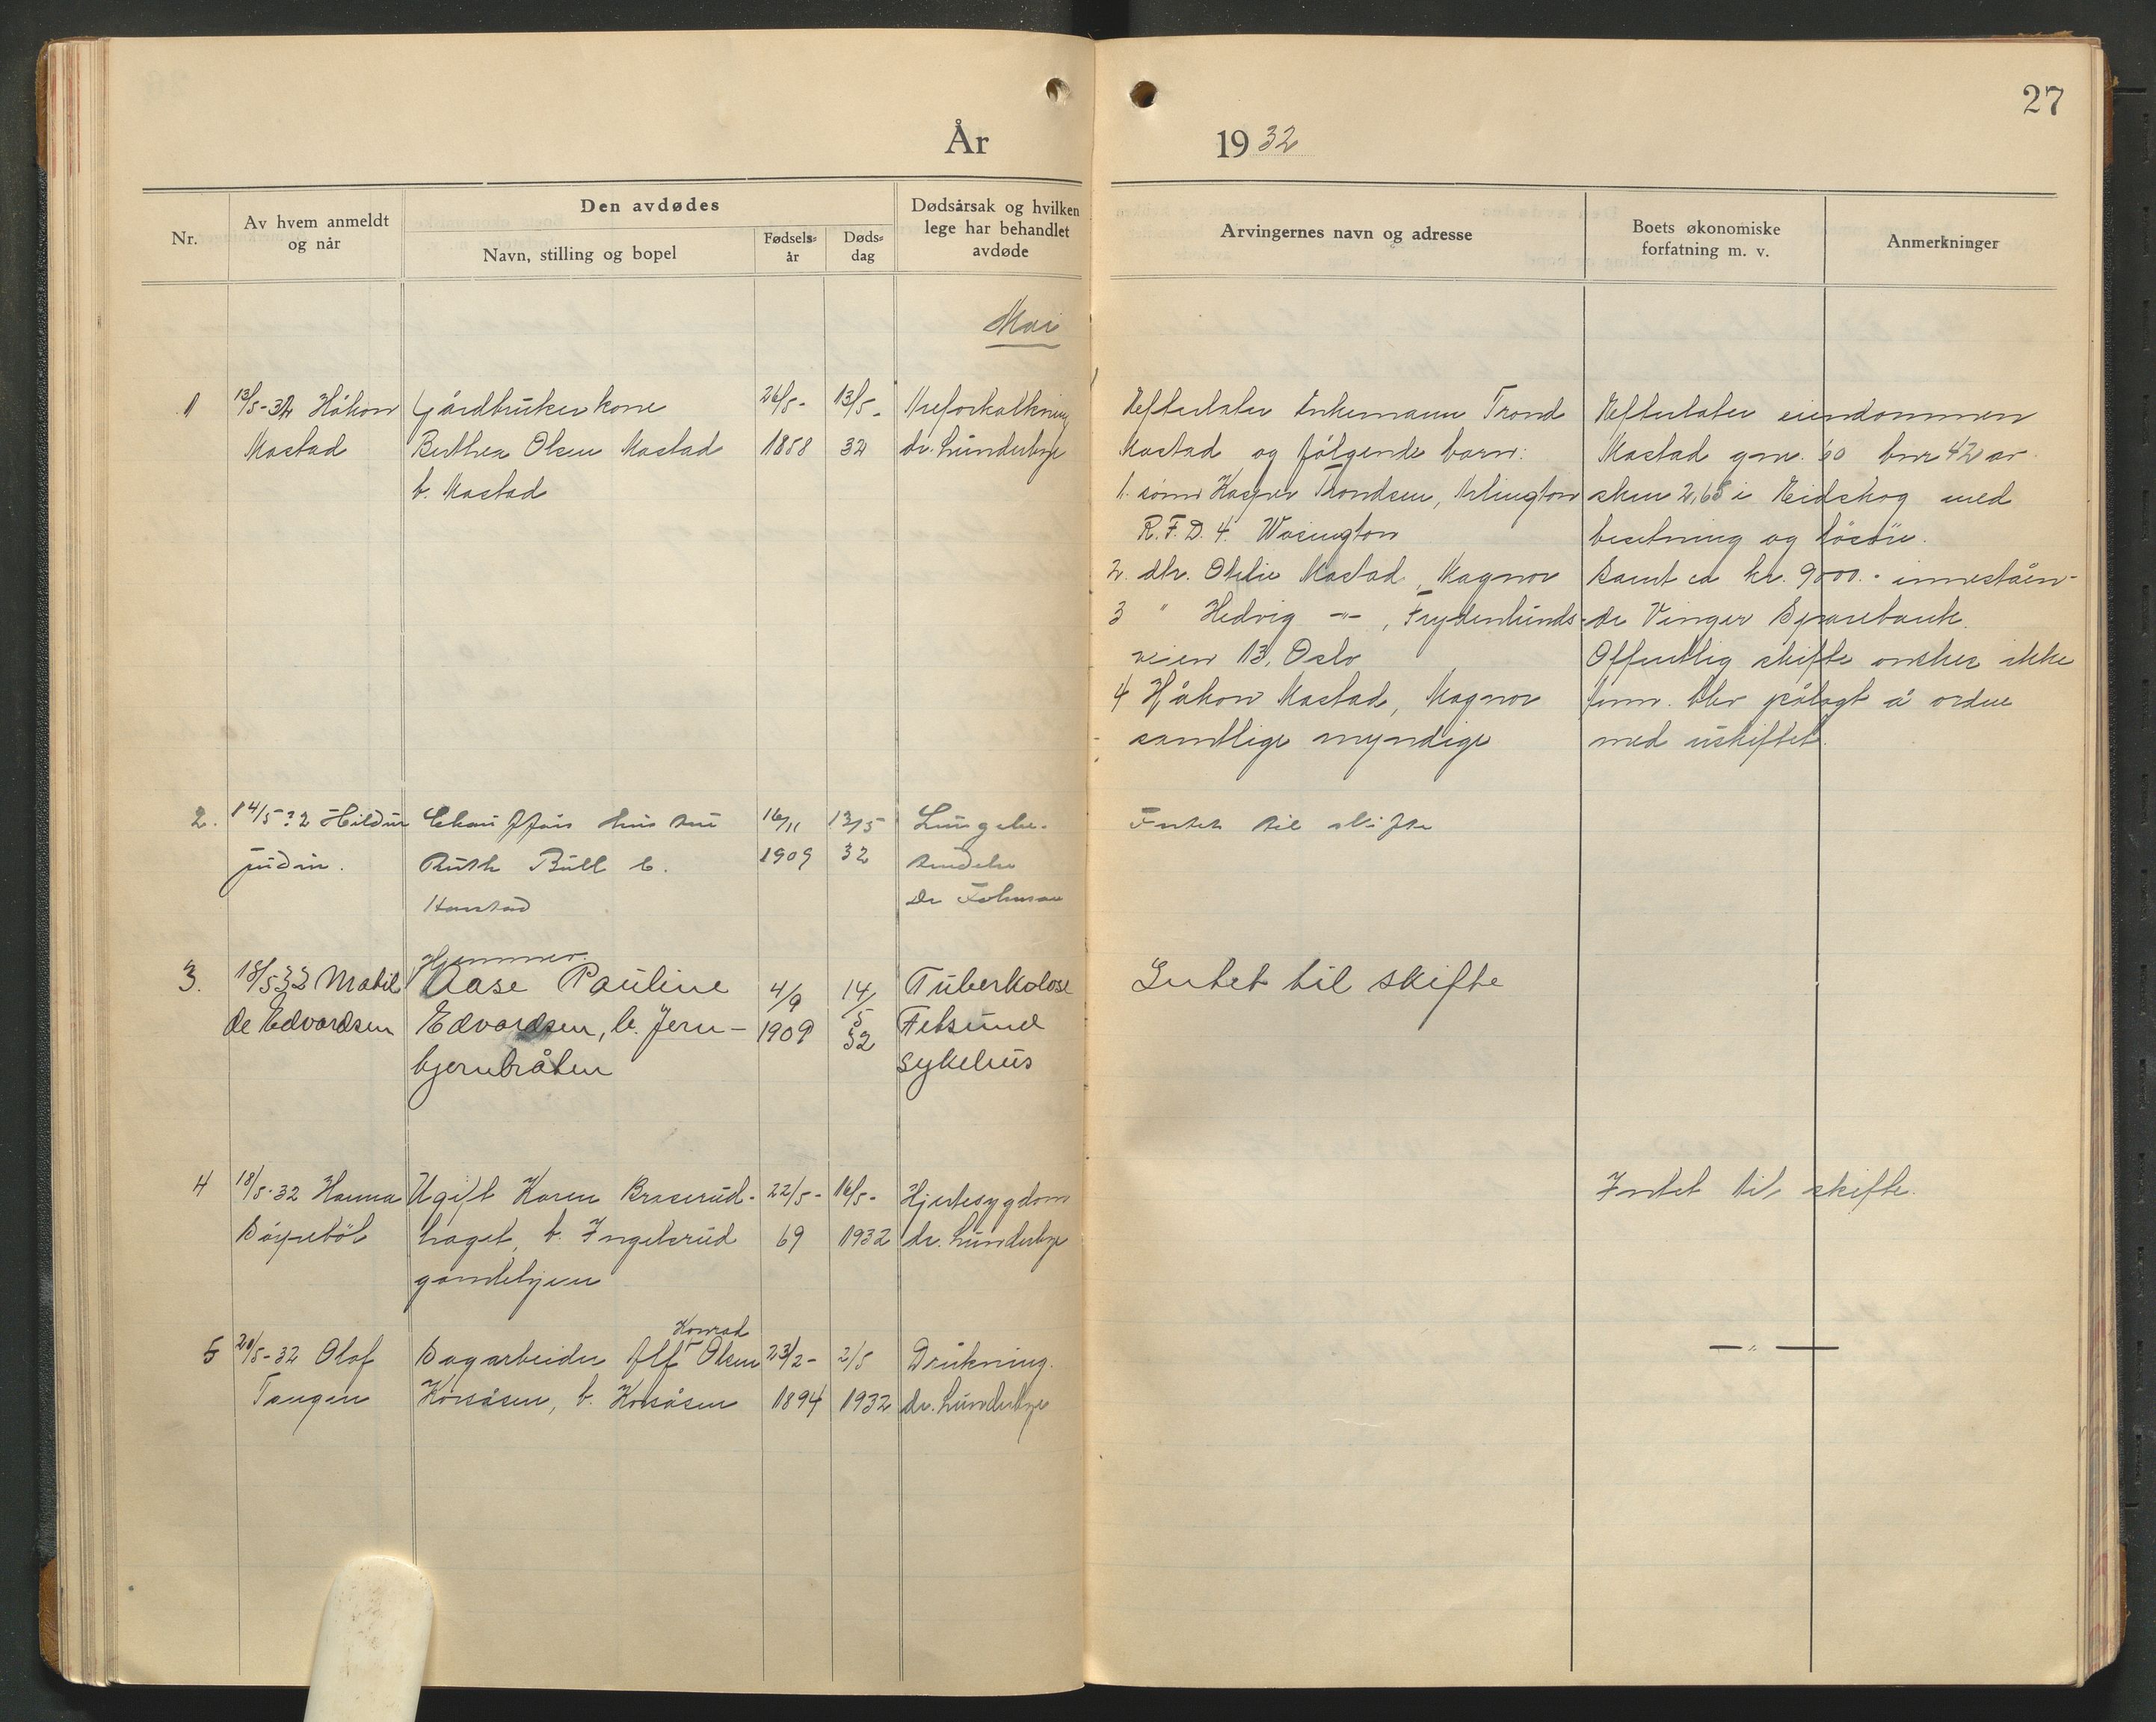 27
År 1932
Nr.
Av hvem anmeldt
og når
Den avdødes
Navn, stilling og bopel
Fødsels-
år
Døds-
dag
Dødsårsak og hvilken
lege har behandlet
avdøde
Arvingernes navn og adresse
Boets økonomiske
forfatning m. v.
Anmerkninger
Mai
1
13/5-32 Håkon
Mastad
Gårdbrukerkone
Berthea Olsen Mastad
b. Mastad
26/5-
1858
13/5-
32
Areforkalkning
dr. Lunderbye
Efterlater Enkemann Trond
Mastad og følgende barn:
1. sønn Kasper Trondsen, Arlington
R.F.D. 4. Wasington
2. dtr. Otelie Mastad, Magnor
3 " Hedvig -"-, Frydenlunds-
veien 13, Oslo
4 Håkon Mastad, Magnor
samtlige myndige
Efterlater eiendommen
Mastad gnr. 60 bnr 42 av
skm 2,68 i Eidskog med
besetning og løsøre.
Samt ca kr. 9000.- inneståen-
de Vinger Sparebank.
Offentlig skifte ønskes ikke
Ann. blev pålagt å ordne
med uskiftet.
2.
14/5 32 Hildur
Chauffør
Ruth Bull b.
Harstad
16/11
1909
13/5
32
Lungebe-
tendelse
Dr
Intet til skifte
3.
18/5 32 Matil
de Edvardsen
Hjemmev.
Aase Pauline
Edvardsen, b. Jern-
bjernbråten
4/9
1909
14/5
32
Tuberkolose
Fetsund
sykehus
Intet til skifte
4
18/5-32 Hanna
Bøgerbøl
Ugift Karen Braserud-
haget, b. Ingelsrud
gamlehjem
22/5-
69
16/5-
1932
Hjertesygdom
dr. Lunderbye
Intet til skifte.
5
20/5-32 Olof
Tangen
Sagarbeider Alf Konrad Olsen
Korsåsen, b. Korsåsen
23/2-
1894
2/5
1932
Drukning.
dr. Lunderbye
— " —